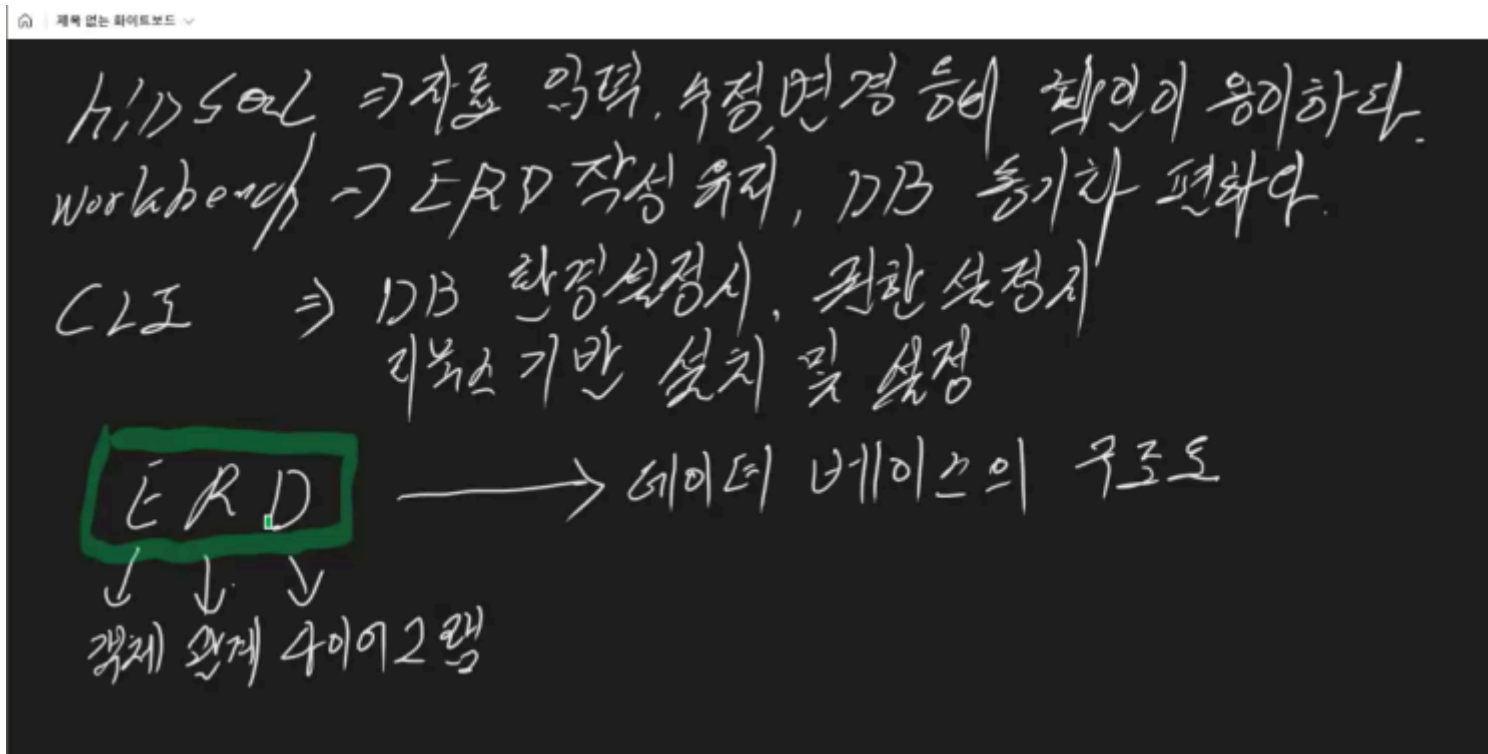 제목 없는 화이트보드
HiDSQL ⇒ 자료 입력, 수정, 변경 등에 확인이 용이하다.
Workbench ⇒ ERD 작성 유지, DB 동기화 편하다.
CLI ⇒ DB 환경설정시, 권한 설정시
리눅스 기반 설치 및 설정
ERD → 데이터 베이스의 구조도
객체 관계 다이어그램